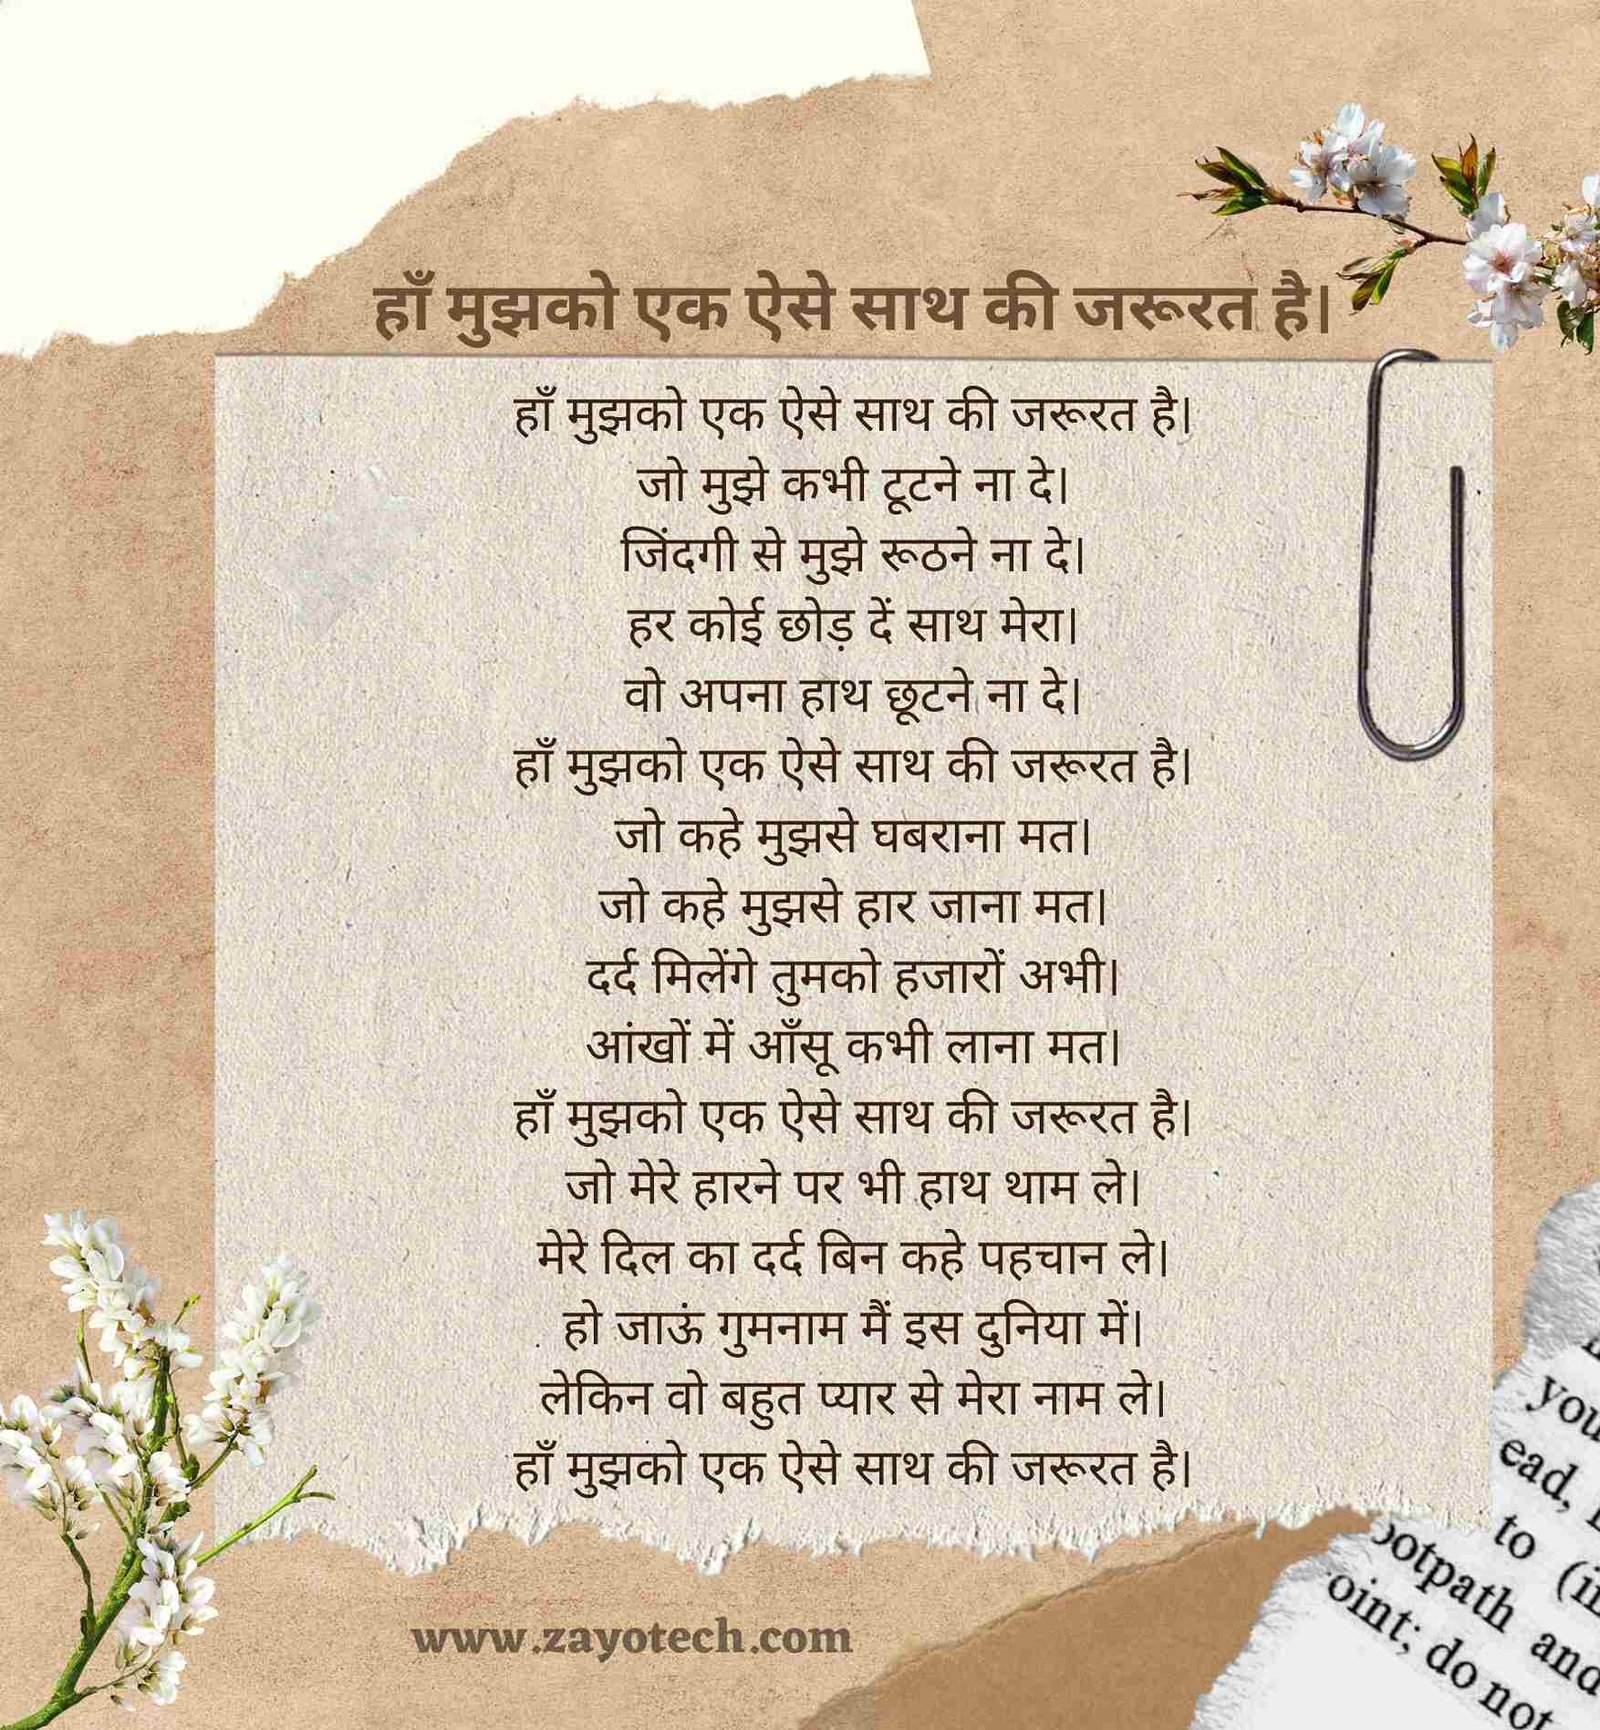 हाँ मुझको एक ऐसे साथ की जरूरत है।
हाँ मुझको एक ऐसे साथ की जरूरत है।
जो मुझे कभी टूटने ना दे।
जिंदगी से मुझे रूठने ना दे।
हर कोई छोड़ दें साथ मेरा।
वो अपना हाथ छूटने ना दे।
हाँ मुझको एक ऐसे साथ की जरूरत है।
जो कहे मुझसे घबराना मत।
जो कहे मुझसे हार जाना मत।
दर्द मिलेंगे तुमको हजारों अभी।
आंखों में आँसू कभी लाना मत।
हाँ मुझको एक ऐसे साथ की जरूरत है।
जो मेरे हारने पर भी हाथ थाम ले।
मेरे दिल का दर्द बिन कहे पहचान ले।
हो जाऊं गुमनाम मैं इस दुनिया में।
लेकिन वो बहुत प्यार से मेरा नाम ले।
हाँ मुझको एक ऐसे साथ की जरूरत है।
www.zayotech.com
you
ead,
to (i
ootpath and
oint; do not